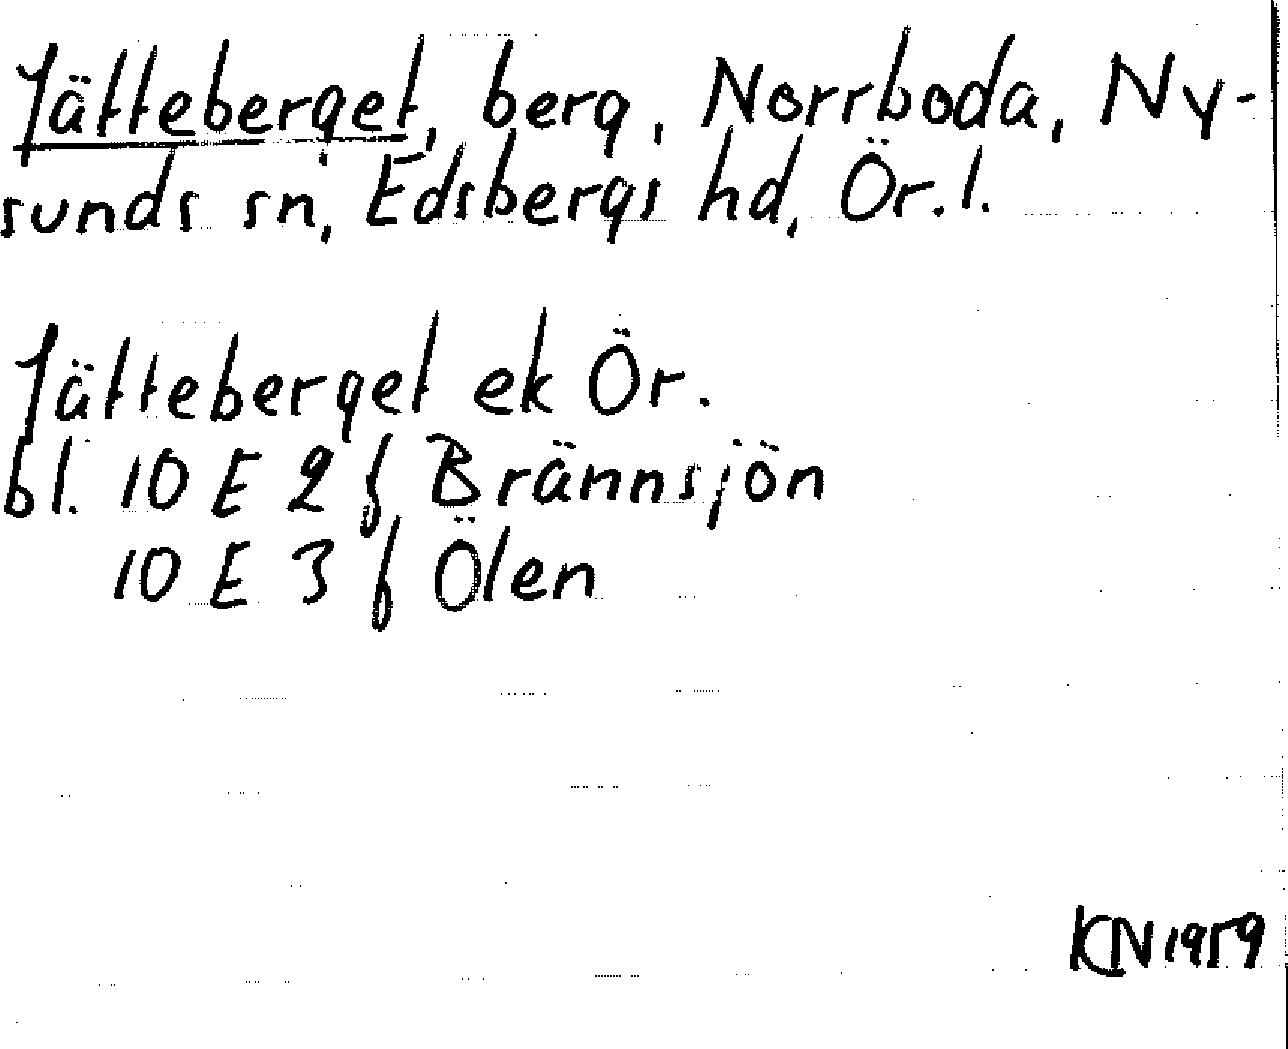 Jätteberget, berg, Norrboda, Ny-
sunds sn, Edsbergs hd, Ör. l.
Jätteberget ek Ör.
bl. 10 E 2 f Brännsjön
10 E 3 f Ölen
KN 1959